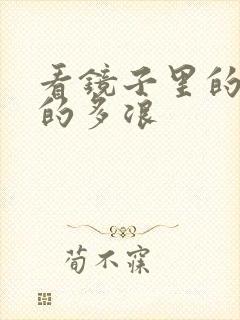 看镜子里的
的多浪
荀不寐